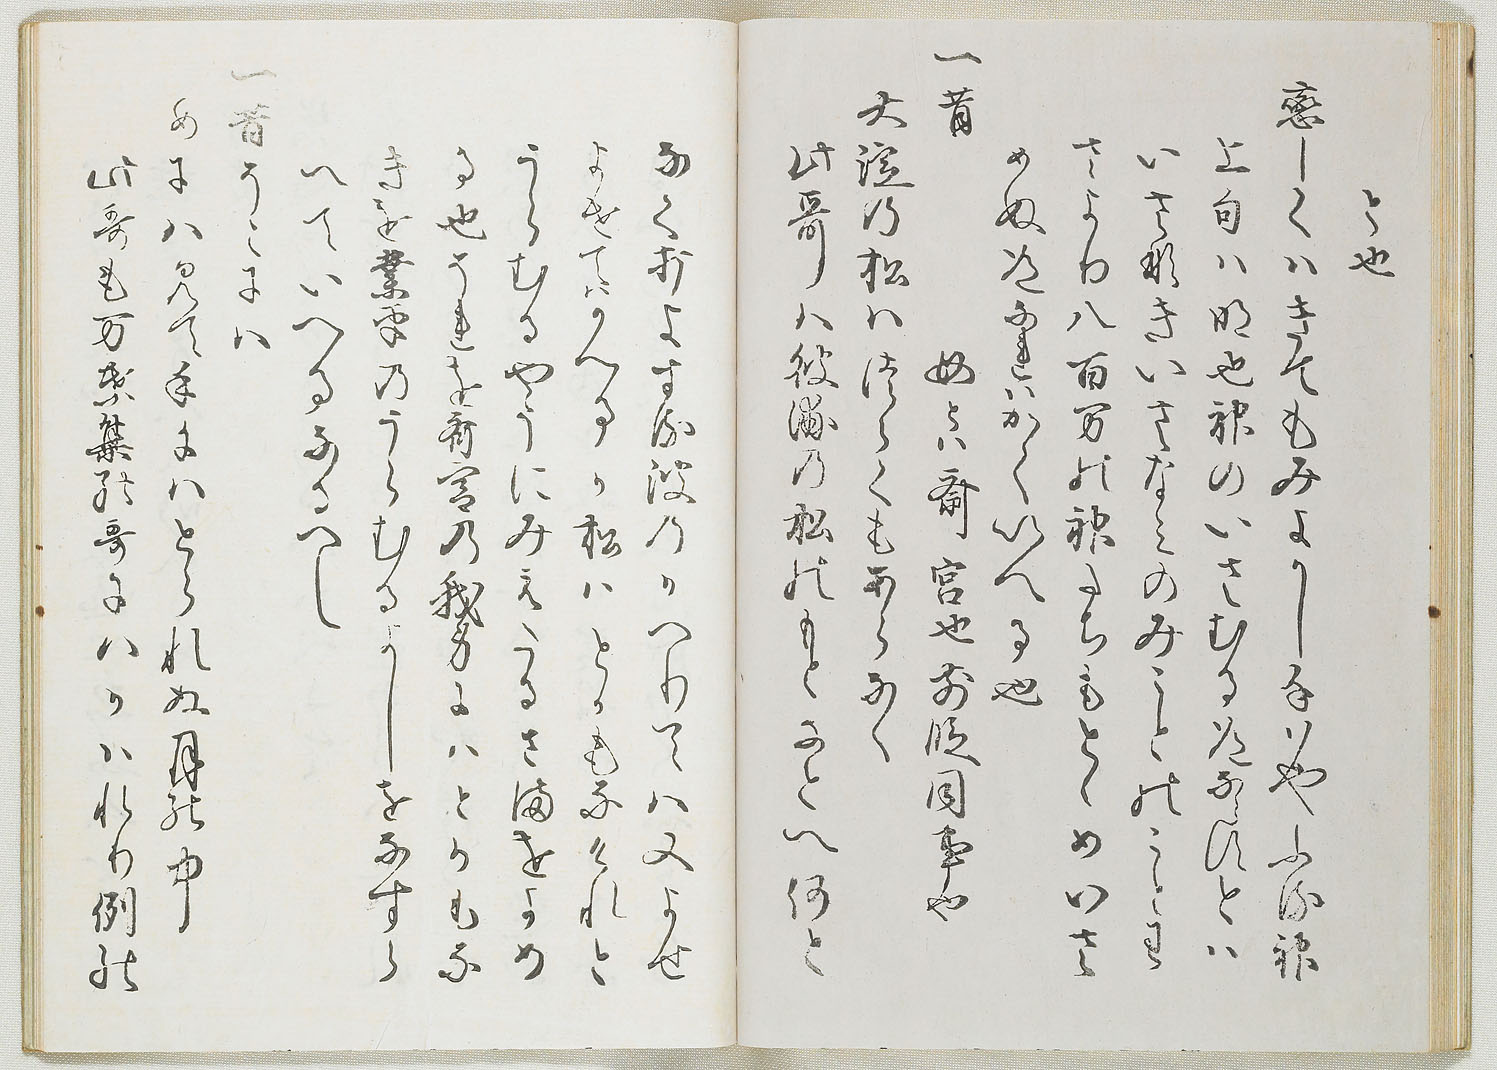 と也
恋しくはきてもみよかしちはやふる神
上句ハ明也神のいさむる道ならすとハ
いさなきいさなみのみことのことわさ
さより八百万の神たちもとゝめいさ
めぬ道なれはかくいへる也
一昔 女とは斎宮也前段同事也
大淀の松ハつらくもあらなくに
此哥ハ彼浦の松のもとなとへ何と
なく打よする波のかへりてハ又よせ
よせてはかへるか松ハとかもなけれと
うらむるやうにみえたるさまをよめ
る也うれを斎宮の我身にハとかもな
きを業平のうらむるよしをなすら
へていへるなるへし
一昔そこにハ
めにハ見て手にハとられぬ月の中
此哥も万葉集の哥にハかハれり例の